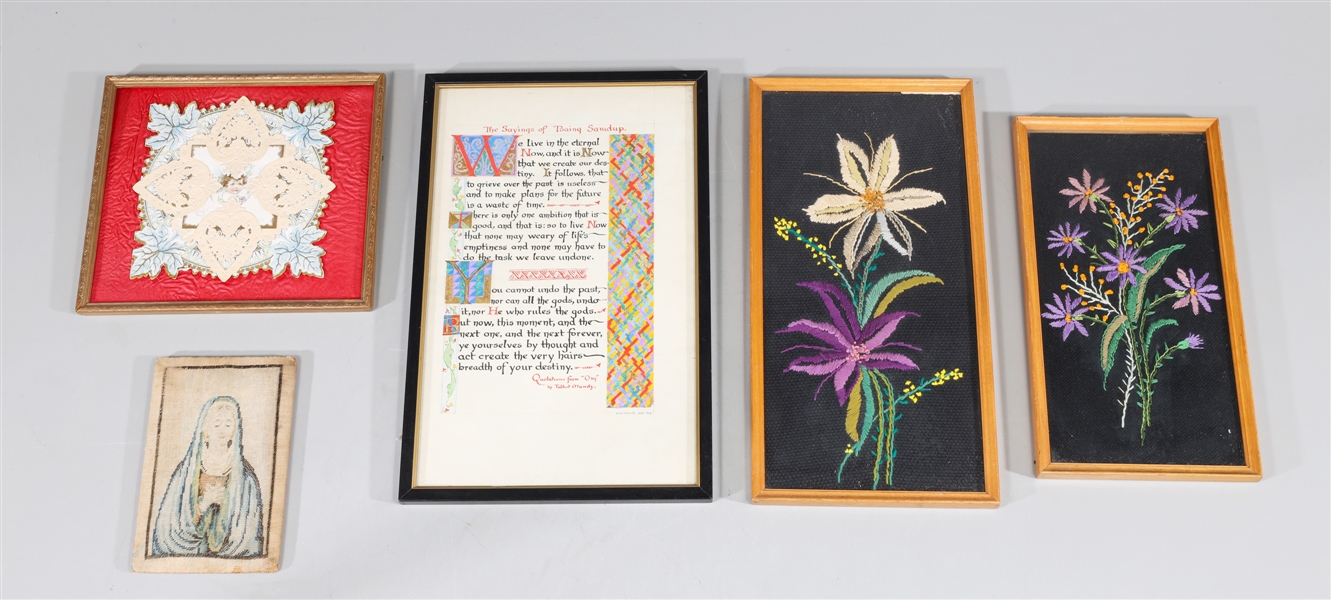 The Sayings of Tsaing Samdup.
We live in the eternal
Now, and it is Now
that we create our des-
tiny. It follows, that
to grieve over the past is useless
and to make plans for the future
is a waste of time.
There is only one ambition that is
good, and that is: so to live Now
that none may weary of life's
emptiness and none may have to
do the task we leave undone.
You cannot undo the past,
nor can all the gods, undo
it, nor He who rules the gods.
But now, this moment, and the
next one, and the next forever,
ye yourselves by thought and
act create the very hairs
breadth of your destiny.
Quotations from "Om"
by Talbot Mundy.